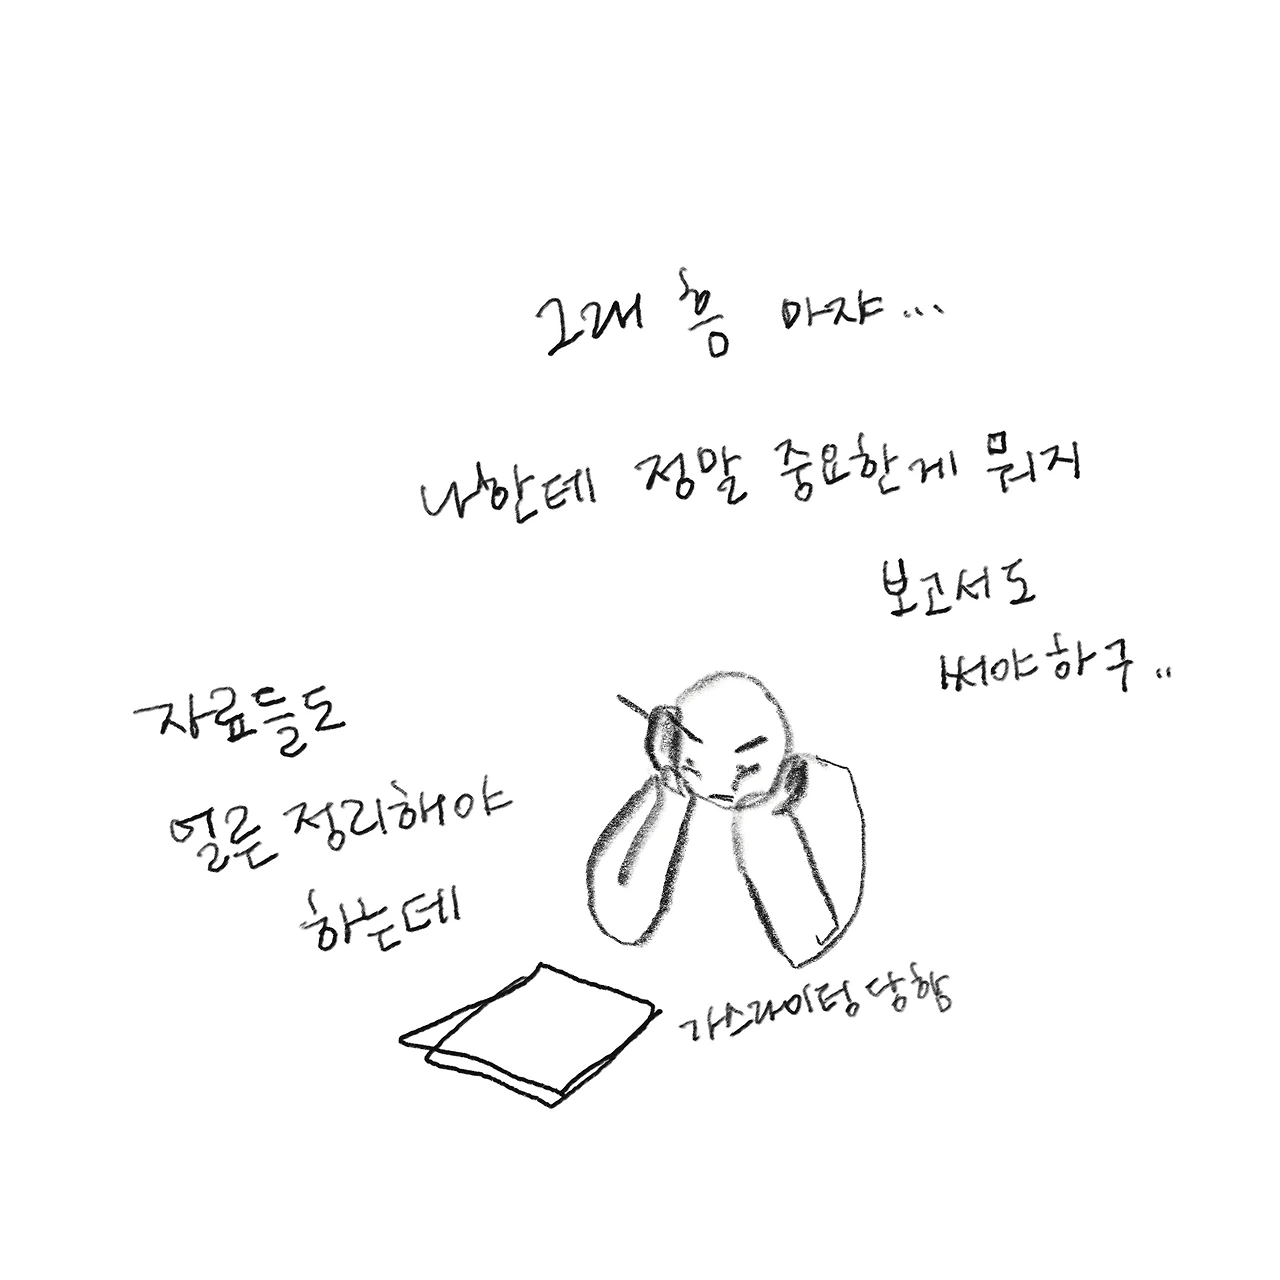 그래 흥 마쟈...
나한테 정말 중요한게 뭐지
보고서도
써야하구..
자료들도
얼른 정리해야
하는데
가스라이팅 당함